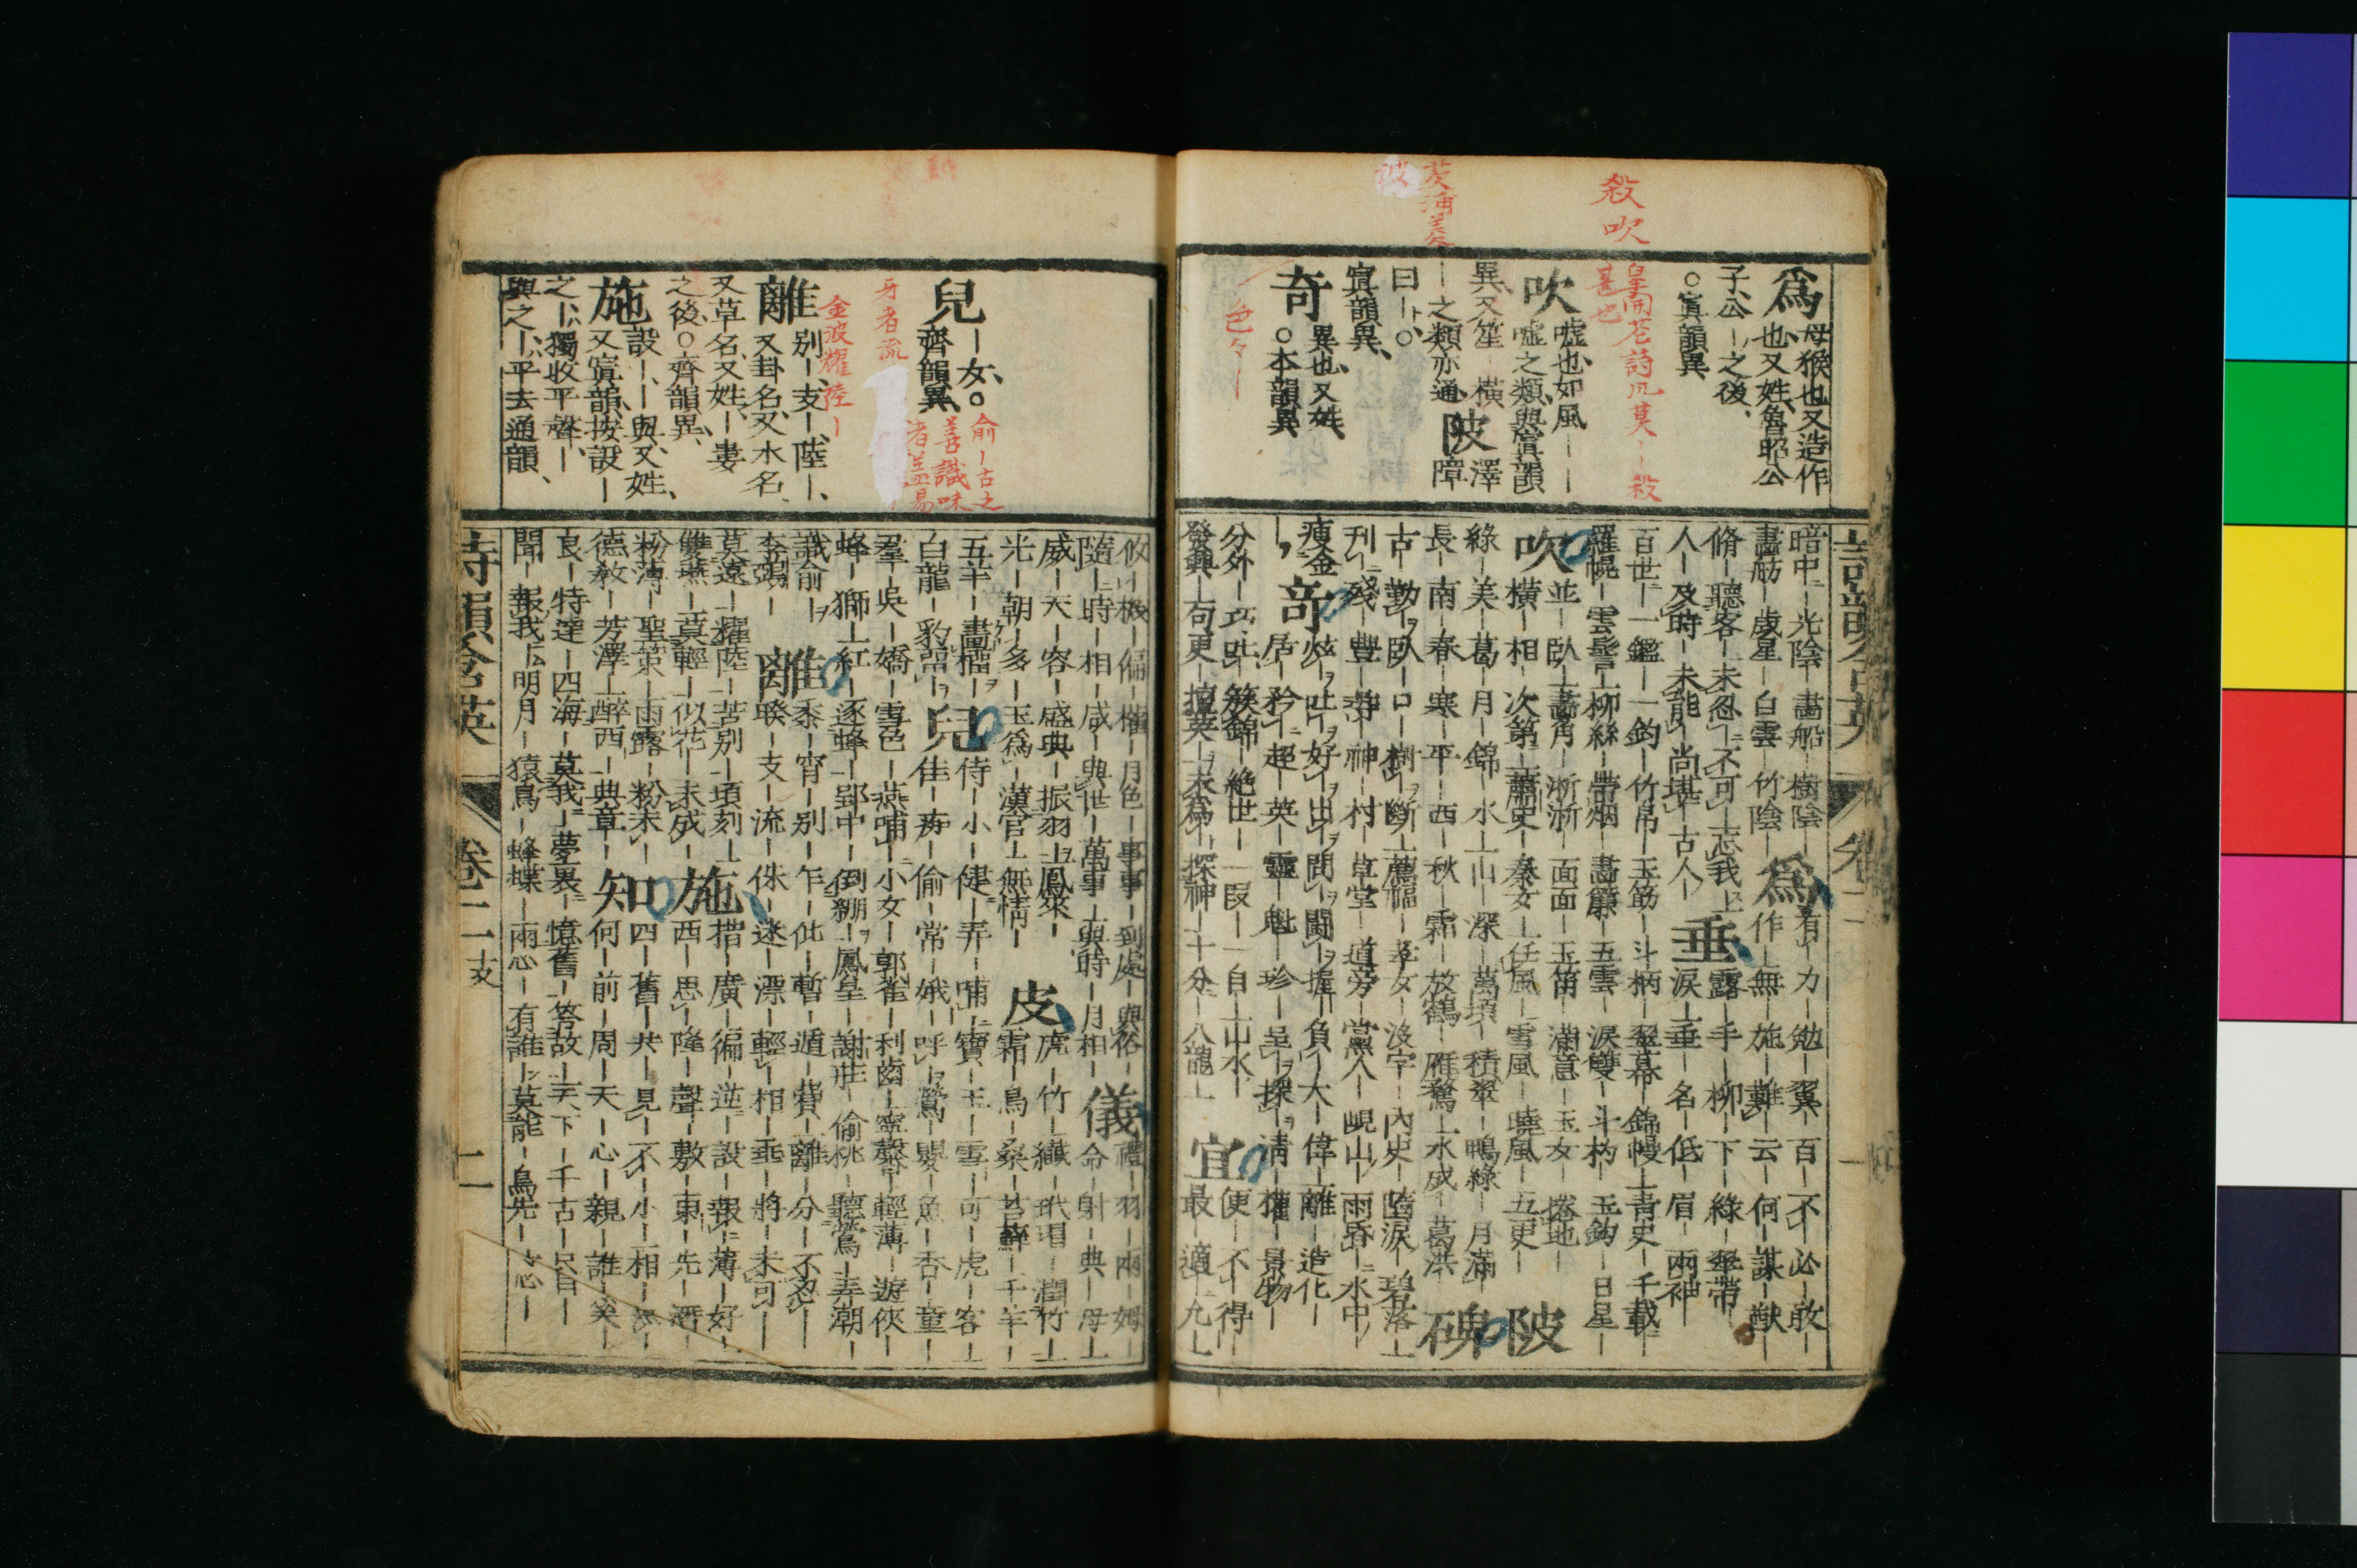 殺吹
皇閉花詩風莫｜｜殺
甚也
菱蒲菱
彼
色々｜
爲母猴也又造作
也又姓魯昭公
子公｜之後、
○寘韻異
吹噓也如風｜｜
噓之類與寘韻
異又笙｜橫
｜之類亦通
陂澤
障
曰｜○
寘韻異、
奇異也又姓、
○本韻異
詩韻含英
卷二
暗中｜光陰｜畫船｜樹陰｜
畫舫｜歲星｜白雲｜竹陰｜
爲有｜力｜勉｜翼｜百｜不｜必｜敢｜
作｜無｜施｜難｜云｜何｜謀｜猷｜
脩｜聽客｜未忍｜不可｜忘我｜
人｜及時｜未能｜尚堪｜古人｜
垂露｜手｜柳｜下｜綠｜翠帶｜
淚｜垂｜名｜低｜眉｜兩袖｜
百世｜一鑑｜一鈞｜竹帛｜玉筯｜斗柄｜翠幕｜錦幔｜青史｜千載｜
羅幌｜雲髻｜柳絲｜帶烟｜畫簾｜五雲｜淚雙｜斗杓｜玉鈎｜日星｜
吹並｜臥｜畫角｜淅淅｜面面｜玉笛｜滿意｜玉女｜捲地｜
橫｜相｜次第｜蕭史｜秦女｜任風｜雪風｜曉風｜五更｜
陂
綠｜美｜葛｜月｜錦｜水｜山｜深｜萬頃｜積翠｜鴨綠｜月滿｜
長｜南｜春｜寒｜平｜西｜秋｜霜｜放鶴｜雁驚｜水成｜葛洪｜
碑
古｜勒｜臥｜口｜樹｜斷｜薦福｜孝女｜沒字｜內史｜墮淚｜碧落｜
刊｜殘｜豐｜神｜村｜草堂｜道旁｜黨人｜峴山｜雨昏｜水中｜
瘦金｜
奇炫｜吐｜好｜出｜問｜鬪｜握｜負｜大｜偉｜離｜造化｜
居｜矜｜超｜英｜靈｜魁｜珍｜呈｜探｜清｜權｜景物｜
分外｜巧｜吐｜簇錦｜絕世｜一段｜一自｜山水｜
發興｜句更｜擅英｜未爲｜探神｜十分｜八龍｜
宜便｜不｜得｜
最｜適｜九｜
兒｜女○
齊韻異、
俞｜古之
善識味
者蓋易
牙者流
金波耀陸｜
離別｜支｜陸｜、
又卦名又水名、
又草名又姓｜婁
之後○齊韻異
施設｜、｜與又姓、
又寘韻按設｜
之｜獨收平聲、｜
與之｜平去通韻、
攸｜機｜偏｜權｜月色｜事事｜到處｜與俗｜
隨｜時｜相｜咸｜與世｜萬事｜與時｜月相｜
儀禮｜羽｜兩｜姆｜
命｜射｜典｜母｜
威｜天｜容｜盛典｜振羽｜鳳來｜
光｜朝｜多｜玉爲｜漢官｜無情｜
皮虎｜竹｜纖｜玳瑁｜潤竹｜
霜｜烏｜桑｜苔蘚｜千羊｜
五羊｜畫樞｜
白龍｜豹留｜
兒侍｜小｜健｜弄｜哺｜寶｜玉｜雪｜可｜虎｜客｜
佳｜毎｜偷｜常｜娥｜呼｜鶯｜嬰｜魚｜杏｜童｜
羣｜吳｜嬌｜雪色｜燕哺｜小女｜郭雀｜利齒｜寧馨｜輕薄｜遊俠｜
蜂｜獅｜紅｜逐蜂｜郢中｜倒綳｜鳳皇｜謝莊｜偷桃｜聽鶯｜弄潮｜
識俞｜
李鵶｜
離黍｜宵｜別｜乍｜仳｜暫｜遁｜費｜離｜分｜不忍｜
睽｜支｜流｜侏｜迷｜漂｜輕｜相｜乖｜將｜未可｜
莫遠｜耀陸｜苦別｜頃刻｜
雙燕｜莫輕｜似花｜未成｜
施措｜廣｜徧｜逆｜設｜報｜薄｜好｜
西｜思｜隆｜聲｜敷｜東｜先｜酒｜
粉薄｜聖策｜雨露｜粉末｜
德教｜芳澤｜醉西｜典章｜
知四｜舊｜共｜見｜不｜小｜相｜
何｜前｜周｜天｜心｜親｜誰｜笑｜
良｜特達｜四海｜莫我｜夢裏｜憶舊｜答故｜天下｜千古｜只自｜
聞｜報我｜明月｜猿鳥｜蜂蝶｜兩心｜有誰｜莫能｜鳥先｜心｜
詩韻含英
卷二支
二